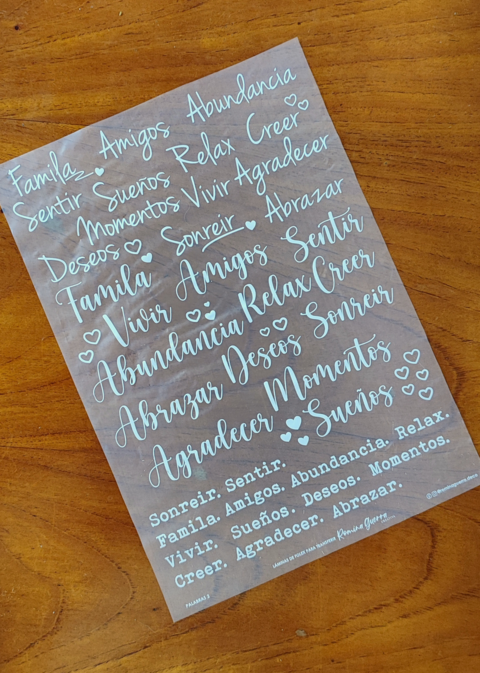 Famila Amigos Abundancia
Sentir Sueños Relax Creer
Momentos Vivir Agradecer
Deseos Sonreir Abrazar
Famila Amigos Sentir
Vivir Abundancia Relax Creer
Abrazar Deseos Sonreir
Agradecer Momentos Sueños
Sonreir. Sentir.
Famila. Amigos. Abundancia. Relax.
Vivir. Sueños. Deseos. Momentos.
Creer. Agradecer. Abrazar.
PALABRAS 2
Romina Guerra